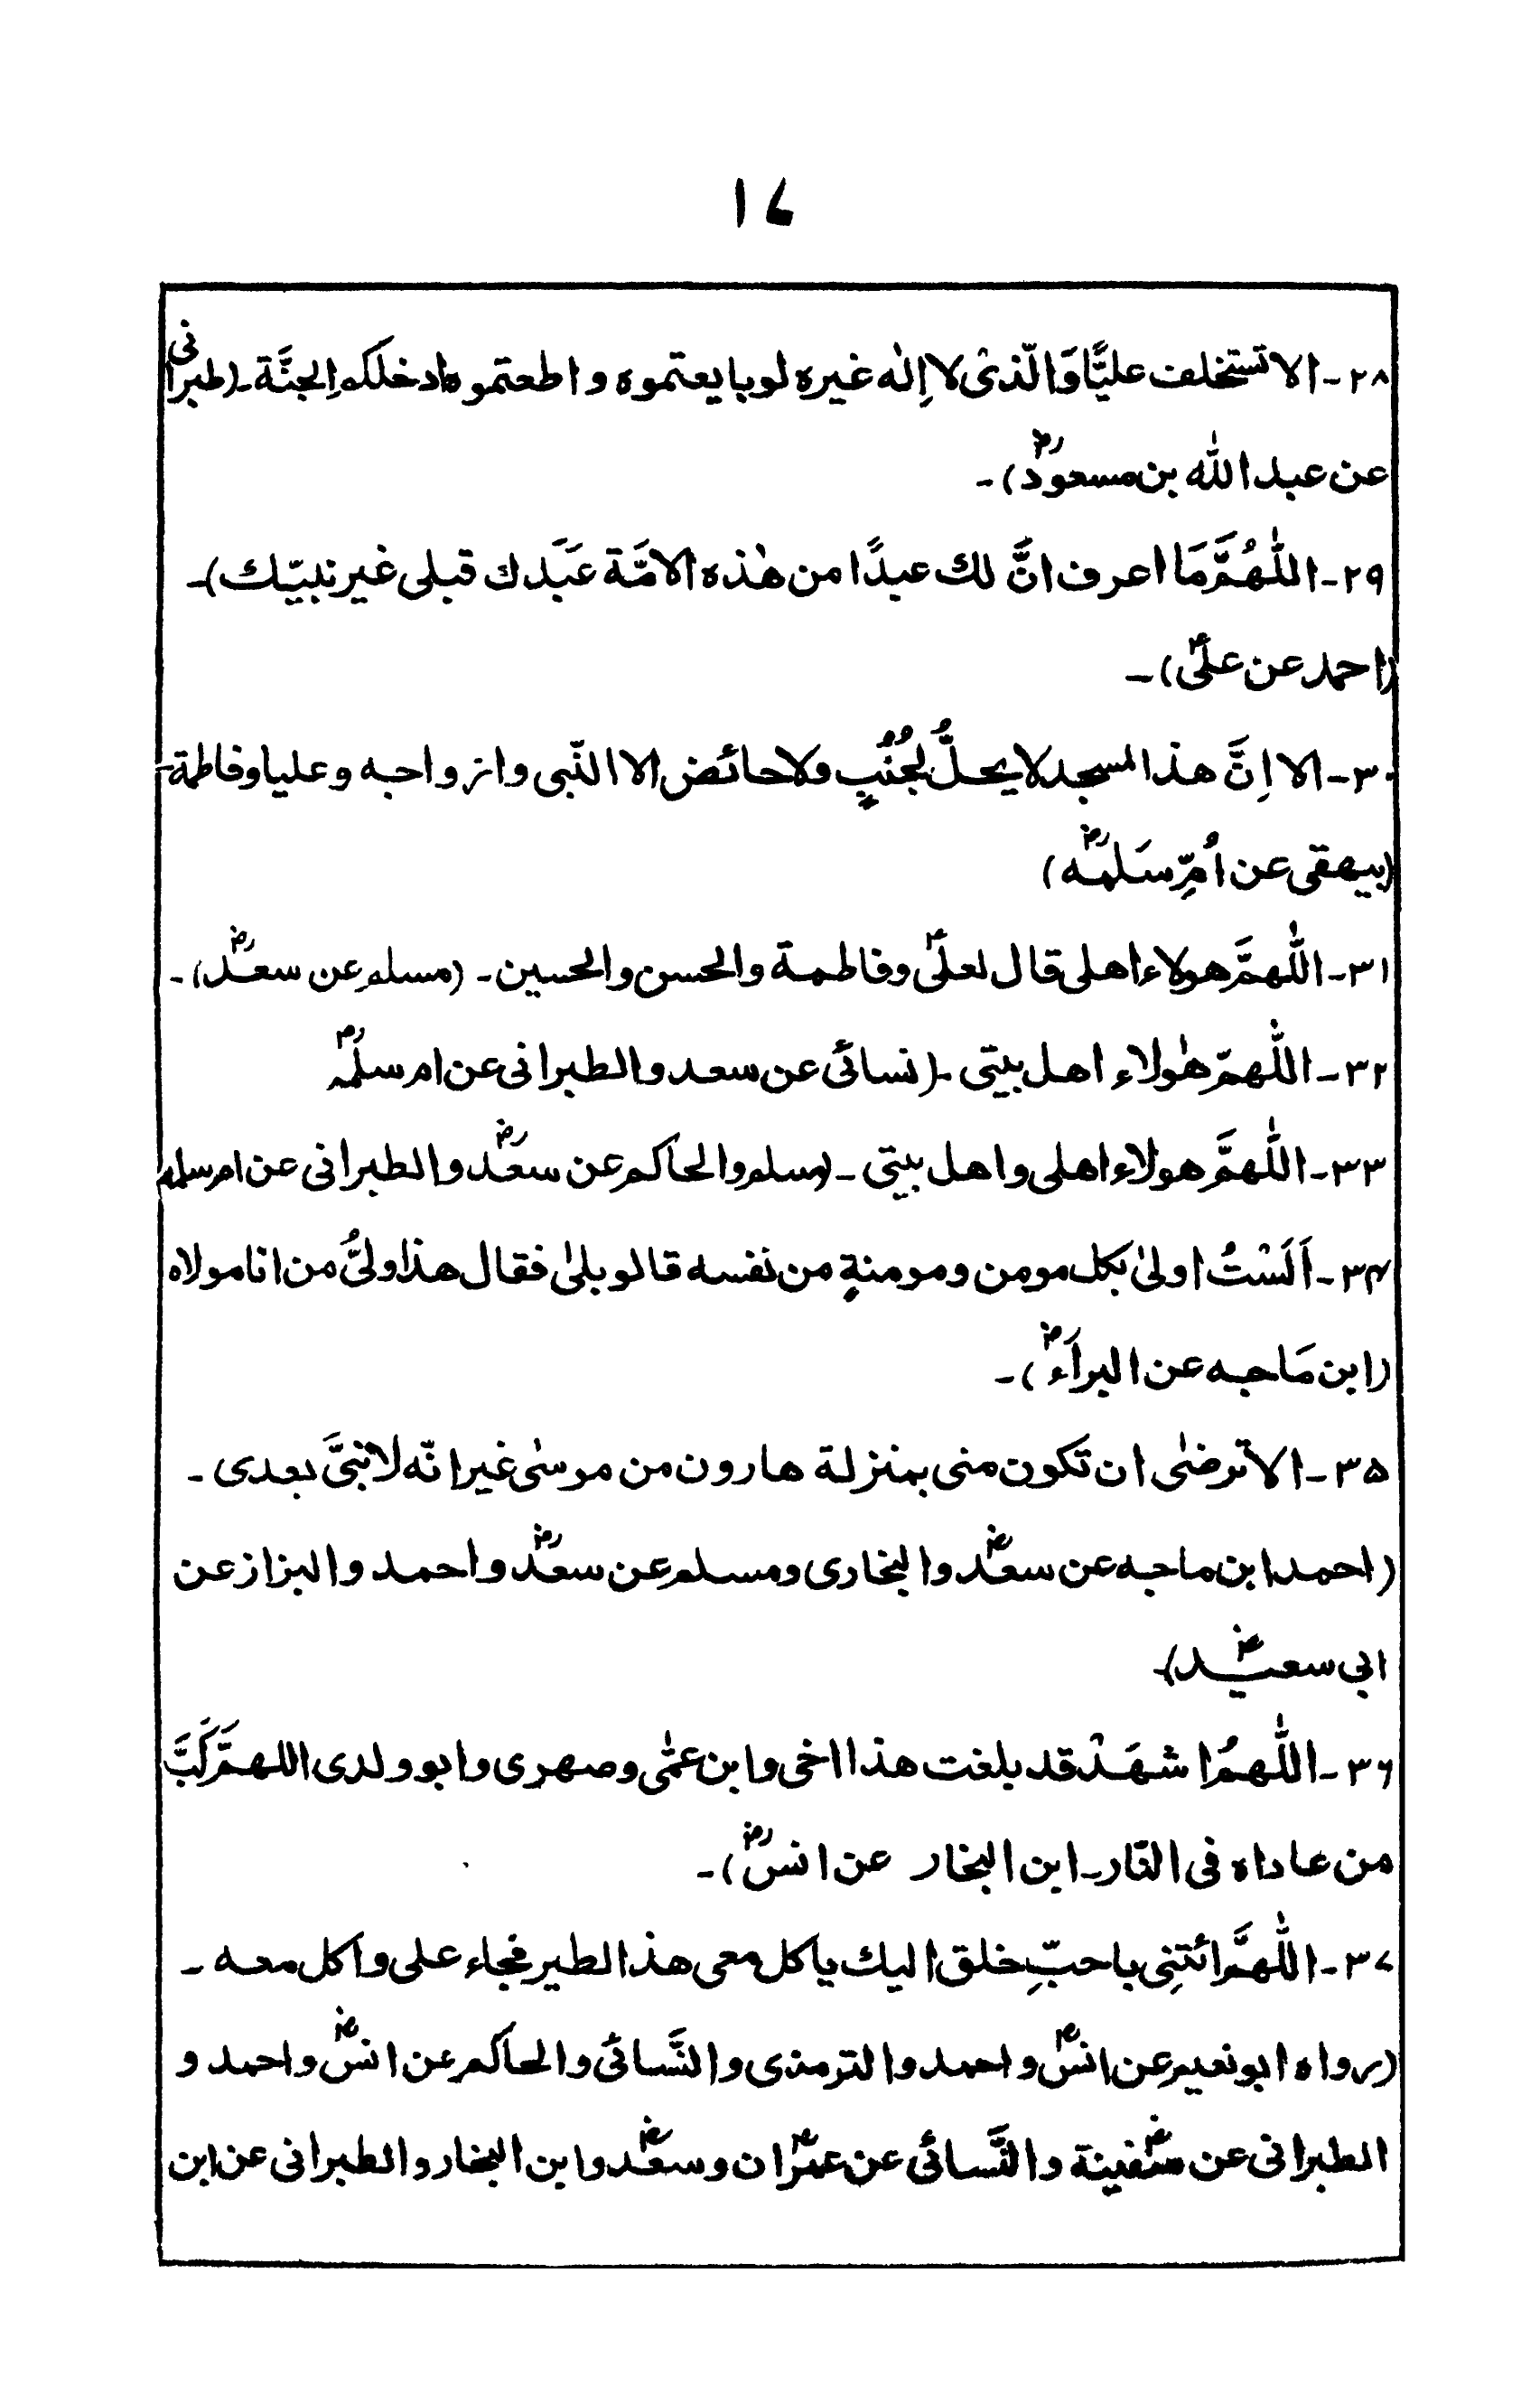 ۱۷
۲۸ـ الا تستخلف علیًّا وَالّذیْ لا إلٰه غیره لو بایعتموه واطعتموه ادخلکم الجنَّة ـ (طبرانی
عن عبد اللّٰه بن مسعودؓ) ـ
۲۹ـ اللّٰهُمَّ مَا اعرف انَّ لك عبدًا من هٰذه الامَّة عَبَدك قبلی غیر نبیّك) ـ
(احمد عن علیؑ) ـ
۳۰ـ الا اِنَّ هذا المسجد لا یحلُّ لجُنُبٍ ولا حائض الا النّبی وازواجه وعلیا وفاطمة ـ
(بیهقی عن اُمِّ سَلمهؓ)
۳۱ـ اللّٰهمَّ هولاء اهلی قال لعلیؑ وفاطمة والحسن والحسین ـ (مسلم عن سعدؓ) ـ
۳۲ـ اللّٰهمّ هٰولاء اهل بیتی ـ (نسائی عن سعد والطبرانی عن ام سلمہؓ
۳۳ـ اللّٰهمَّ هولاء اهلی واهل بیتی ـ (مسلم والحاکم عن سعدؓ والطبرانی عن ام سلمہ
۳۴ـ اَلَسْتُ اولیٰ بکل مومن ومومنةٍ من نفسه قالو بلیٰ فقال هذا ولیُّ من انا مولاه
(ابن مَاجه عن البراَءؓ) ـ
۳۵ـ الا ترضٰی ان تکون منی بمنزلة هارون من موسٰی غیر انّه لا نبیَّ بعدی ـ
(احمد ابن ماجه عن سعدؓ والبخاری ومسلم عن سعدؓ واحمد والبزاز عن
ابی سعیدؓ) ـ
۳۶ـ اللّٰهمُ اشهَدْ قد بلغت هذا اخی وابن عمّی وصهری وابو ولدی اللهمَّ کَبَّ
من عاداه فی النّار ـ ابن البخار عن انسؓ) ـ
۳۷ـ اللّٰهمَّ ائتنِی باحبِّ خلق الیك یاکل معی هذا الطیر فجاء علی واکل معه ـ
(رواه ابو نعیم عن انسؓ واحمد والترمذی والنَّسائی والحاکم عن انسؓ واحمد و
الطبرانی عن سفینةؓ والنَّسائی عن عمرانؓ وسعدؓ وابن البخار والطبرانی عن ابن